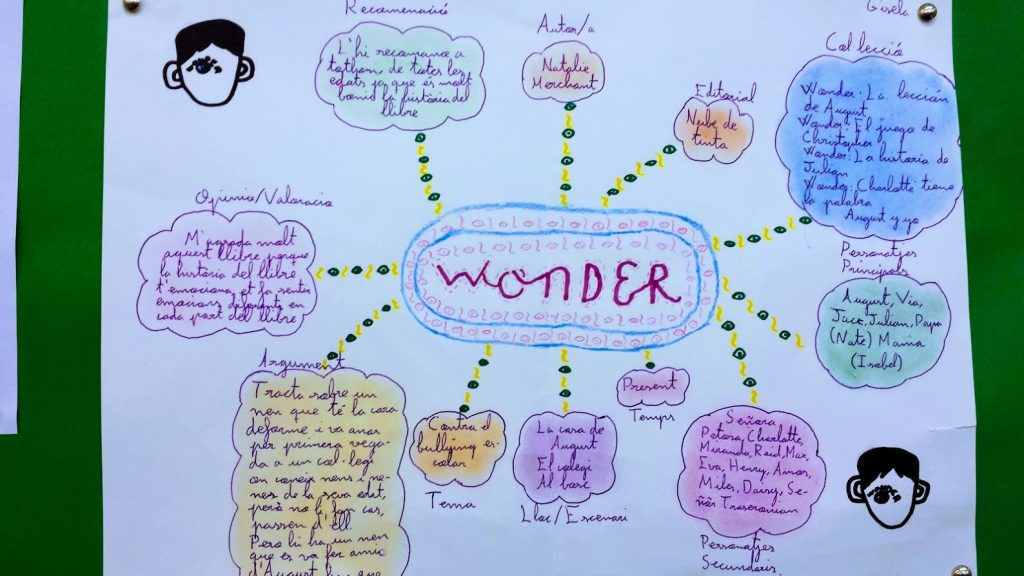 Recomenació
L'hi recomano a
tothom, de totes les
edats ja que és molt
bonic la història del
llibre
Autor/a
Natalie
Merchant
Editorial
Nube de
tinta
Gisela
Col·lecció
Wonder: La lección
de August
Wonder: El juego de
Christopher
Wonder: La historia de
Julian
Wonder: Charlotte tiene
la palabra
August y yo
Opinió/Valoració
M'agrada molt
aquest llibre perque
la història del llibre
t'emociona, et fa sentir
emocions diferents en
cada part del llibre
WONDER
Personatjes
Principals
August, Via,
Jack, Julian, Papa
(Nate) Mama
(Isabel)
Argument
Tracta sobre un
nen que té la cara
deforme i va anar
per primera vega-
da a un col·legi
on coneix nens i ne-
nes de la seva edat,
però no li fan cas,
passen d'ell.
Pero hi ha un nen
que es va fer amic
d'August
Contra el
bullying es-
colar
Tema
La casa de
August
El colegi
Al barc
Lloc/Escenari
Present
Temps
Señora
Petosa, Charlotte,
Miranda, Reid, Max,
Eva, Henry, Amos,
Miles, Daisy, Se-
ñor
Personatjes
Secundaris